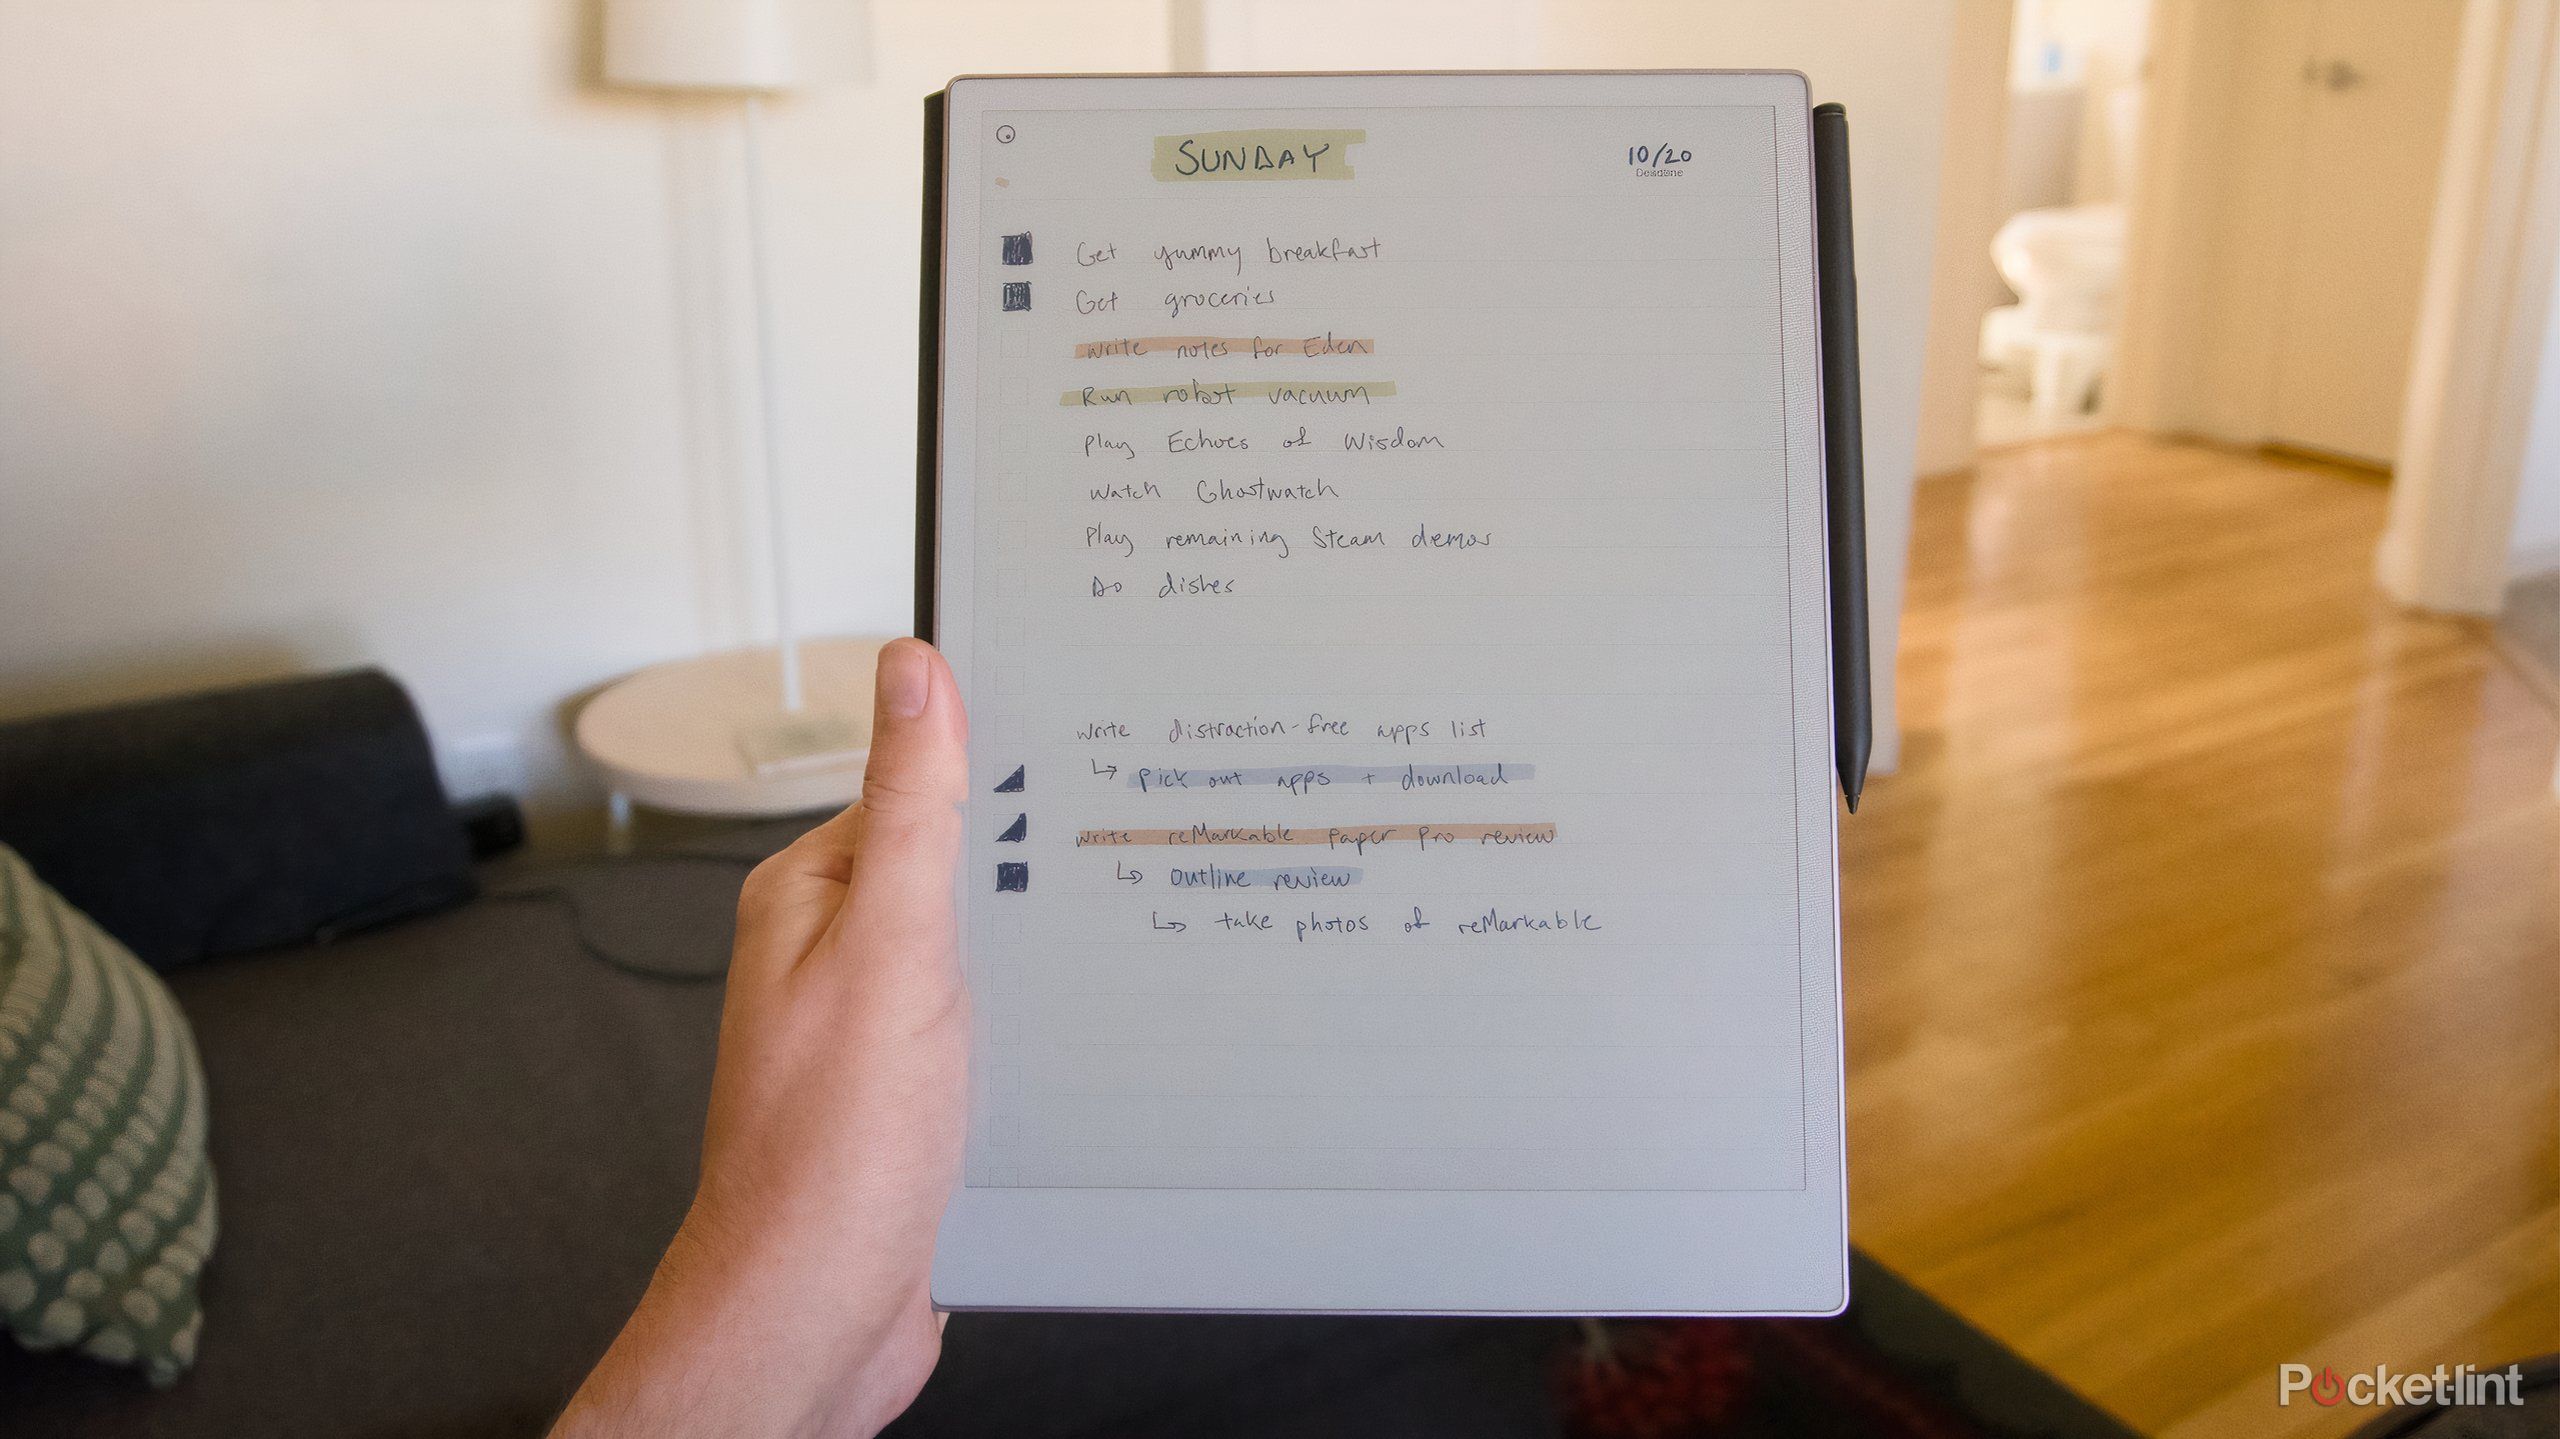 SUNDAY
10/20
Deadline
Get yummy breakfast
Get groceries
write notes for Eden
Run robot vacuum
Play Echoes of Wisdom
Watch Ghostwatch
Play remaining Steam demos
Do dishes
write distraction-free apps list
↳ pick out apps + download
write reMarkable paper pro review
↳ outline review
↳ take photos of reMarkable
Pocket-lint